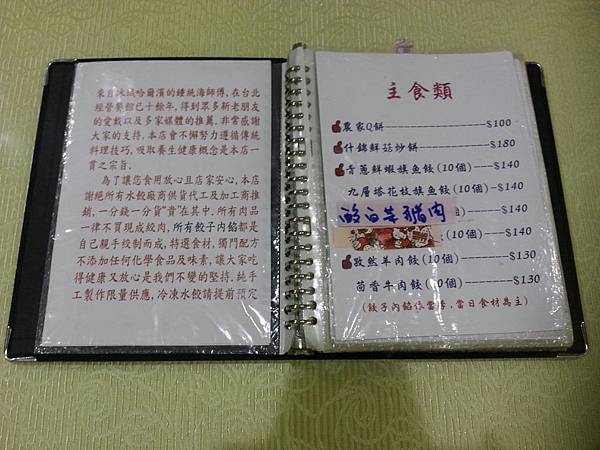 來自冰城哈爾濱的鍾統海師傅,在台北
經營餐館已十餘年,得到眾多新老朋友
的愛戴以及多家媒體的推薦.非常感謝
大家的支持.本店會不懈努力遵循傳統
料理技巧,吸取養生健康概念是本店一
貫之宗旨.
為了讓您食用放心且店家安心,本店
謝絕所有水餃廠商供貨代工及加工商推
銷,一分錢一分貨"貴"在其中,所有肉品
一律不買現成絞肉,所有餃子內餡都是
自己親手絞制而成,特選食材,獨門配方
不添加任何化學食品及味素,讓大家吃
得健康又放心是我們不變的堅持.純手
工製作限量供應,冷凍水餃請提前預定
主食類
農家Q餅$100
什錦鮮菇炒餅$180
青蔥鮮蝦旗魚餃(10個)$140
九層塔花枝旗魚餃(10個)-$140
酸白菜豬肉$140
(10個)$140
孜然羊肉餃(10個)$130
茴香牛肉餃(10個)$130
(餃子內餡依當季,當日食材為主)